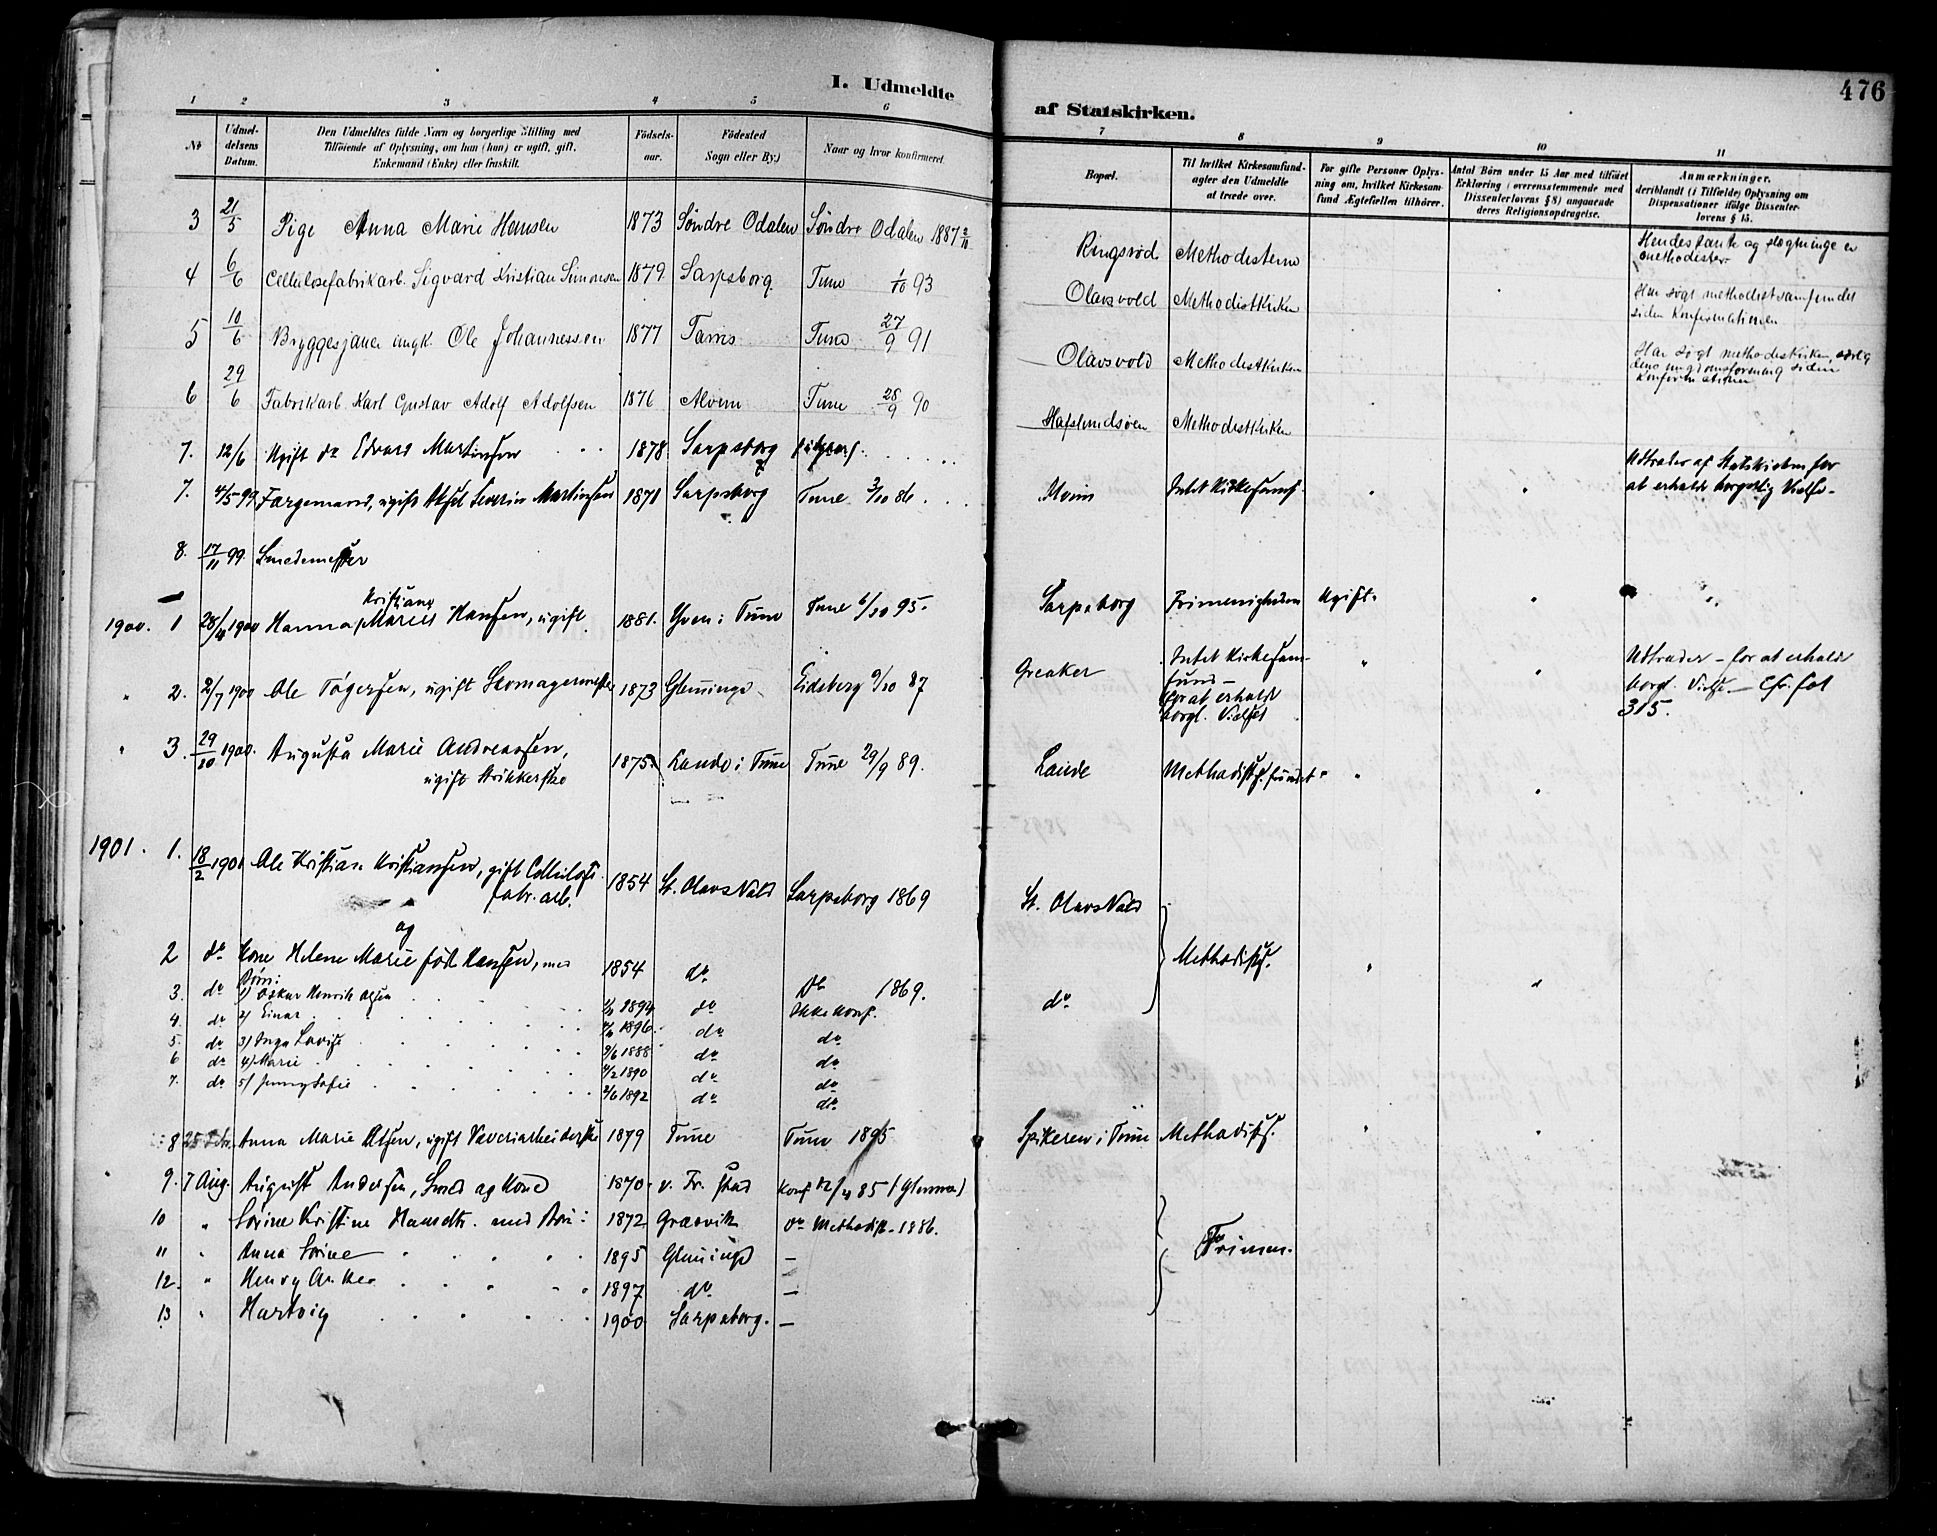 I. Udmeldte af Statskirken. 476
1 2 3 4 5 6 7 8 9 10 11
No
Udmeldelsens Datum.
Den Udmeldtes fulde Navn og borgerlige Stilling med Tilføiende af Oplysning, om han (hun) er ugift, gift, Enkemand (Enke) eller fraskilt.
Fødselsaar.
Fødested Sogn eller By)
Naar og hvor konfirmeret.
Bopæl.
Til hvilket Kirkesamfund agter den Udmeldte at træde over.
For gifte Personer Oplysning om, hvilket Kirkesamfund Ægtefællen tilhører.
Antal Børn under 15 Aar med tilføiet Erklæring (overensstemmende med Dissenterlovens § 8) angaaende deres Religionsopdragelse.
Anmærkninger, deriblandt (i Tilfælde) Oplysning om Dispensationer ifølge Dissenterlovens § 15.
3 21/5 Pige Anna Marie Hansen 1873 Søndre Odalen Søndre Odalen 1887 Ringsrød Methodisterne Hendes tante og slægtninge er methodister
4 6/6 Cellulosefabrikarb. Sigvard Kristian Simonsen 1879 Sarpsborg Tune 1/10 93 Olavsvold Methodistkirken Har søgt methodistsamfundet siden Konfirmationen
5 10/6 Bryggesjauer ungk. Ole Johannessen 1877 Tune 27/9 91 Olavsvold Methodistkirken Har søgt methodistkirken, særlig dens ungdomsforening siden Konfirmationen
6 29/6 Fabrikarb. Karl Gustav Adolf Adolfsen 1876 Alvim Tune 28/9 90 Hafslundsøen Methodistkirken
7. 12/6 Ugift do Edvard Martinsen 1878 Sarpsborg
7. 4/5-99 Færgemand, ugift Aksel Severin Martinsen 1871 Sarpsborg Tune 3/10 86 Alvim Intet Kirkesamf. Udtræder af Statskirken for at erholde borgerlig Vielse
8. 17/11 99. Smedemester
1900. 1 28/4 1900 Hanna Kristiane Marie Hansen, ugift 1881. Yven i Tune Tune 6/10 95. Sarpsborg Frimenigheden Ugift
" 2. 2/7 1900 Ole Tøgersen, ugift Skomagermester 1873 Glemminge Eidsberg 9/10 87 Greaker Intet Kirkesamfund – for at erholde borgl. Vielse Udtræder – for at erholde borgl. Vielse – Cfr. fol 315.
" 3. 29/10 1900. Augusta Marie Andreassen, ugift Strikkerske 1875 Lande i Tune Tune 29/9 89. Lande Methodistsamfundet
1901. 1. 18/2 1901 Ole Kristian Kristiansen, gift Cellulosefabr. arb. 1854 St. Olavs Vold Sarpsborg 1869 St. Olavs Vold
og
2 do Kone Helene Marie født Hansen, med 1854 do Do 1869. do Methodist.
Børn:
3. do 1) Oskar Henrik Olsen 1894 do Ikke konf.
4. do 2) Einar 1896 do do
5. do 3) Inga Lovise 9/6 1888 do do
6 do 4) Marie 4/2 1890 do do
7. do 5) Jenny Sofie 2/6 1892 do do
8 25 Feb. Anna Marie Olsen, ugift Væveriarbeiderske 1879 Tune Tune 1895 Spikeren i Tune Methodist.
9. 7 Aug. August Andersen, Smed og Kone 1870 v. Fr. stad Konf 85 (Glemm)
10 " Sørine Kristine Hansdtr. med Børn: 1872 Græsvik do Methodist. 1886.
11 " Anna Sørine 1895 Glemminge – Frimen.
12. " Henry Anker 1897 do –
13 " Hartvig 1900 Sarpsborg. –